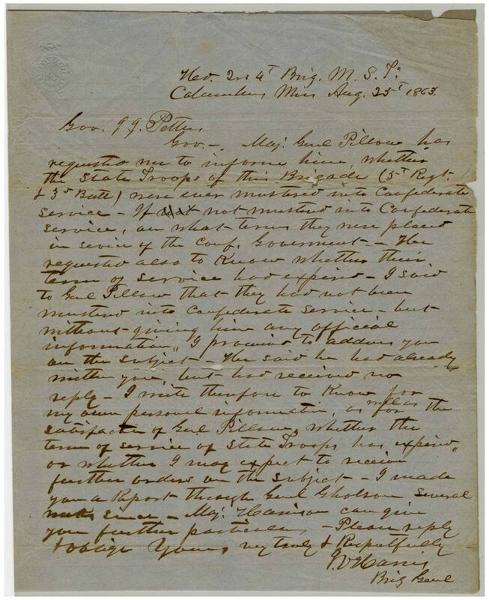 Hed. Qrs 4" Brig. M. S. T.
Columbus Miss Aug. 25" 1863.
Gov. J J. Pettus
Gov. – Maj. Genl Pillow has
requested me to inform him, whether
the State Troops of this Brigade (5" Regt
& 3d Batt) were ever mustered into Confederate
service – If not mustered into Confederate
service, on what terms they were placed
in service of the Conf. Government – He
requested also to know whether their
term of service had expired – I said
to Genl Pillow that they had not been
mustered into Confederate service – but
without giving him any official
information, I promised to address you
on the subject – He said he had already
written you, but had received no
reply – I write therefore to know for
my own personal information, as well as for the
satisfaction of Genl Pillow, whether the
term of service of State Troops has expired,
or whether I may expect to receive
further orders on the subject – I made
you a report through Genl Gholson several
since – Maj. Harrison can give
you further particulars – Please reply
& oblige Yours very truly & Respectfully
Harris
Brig Genl